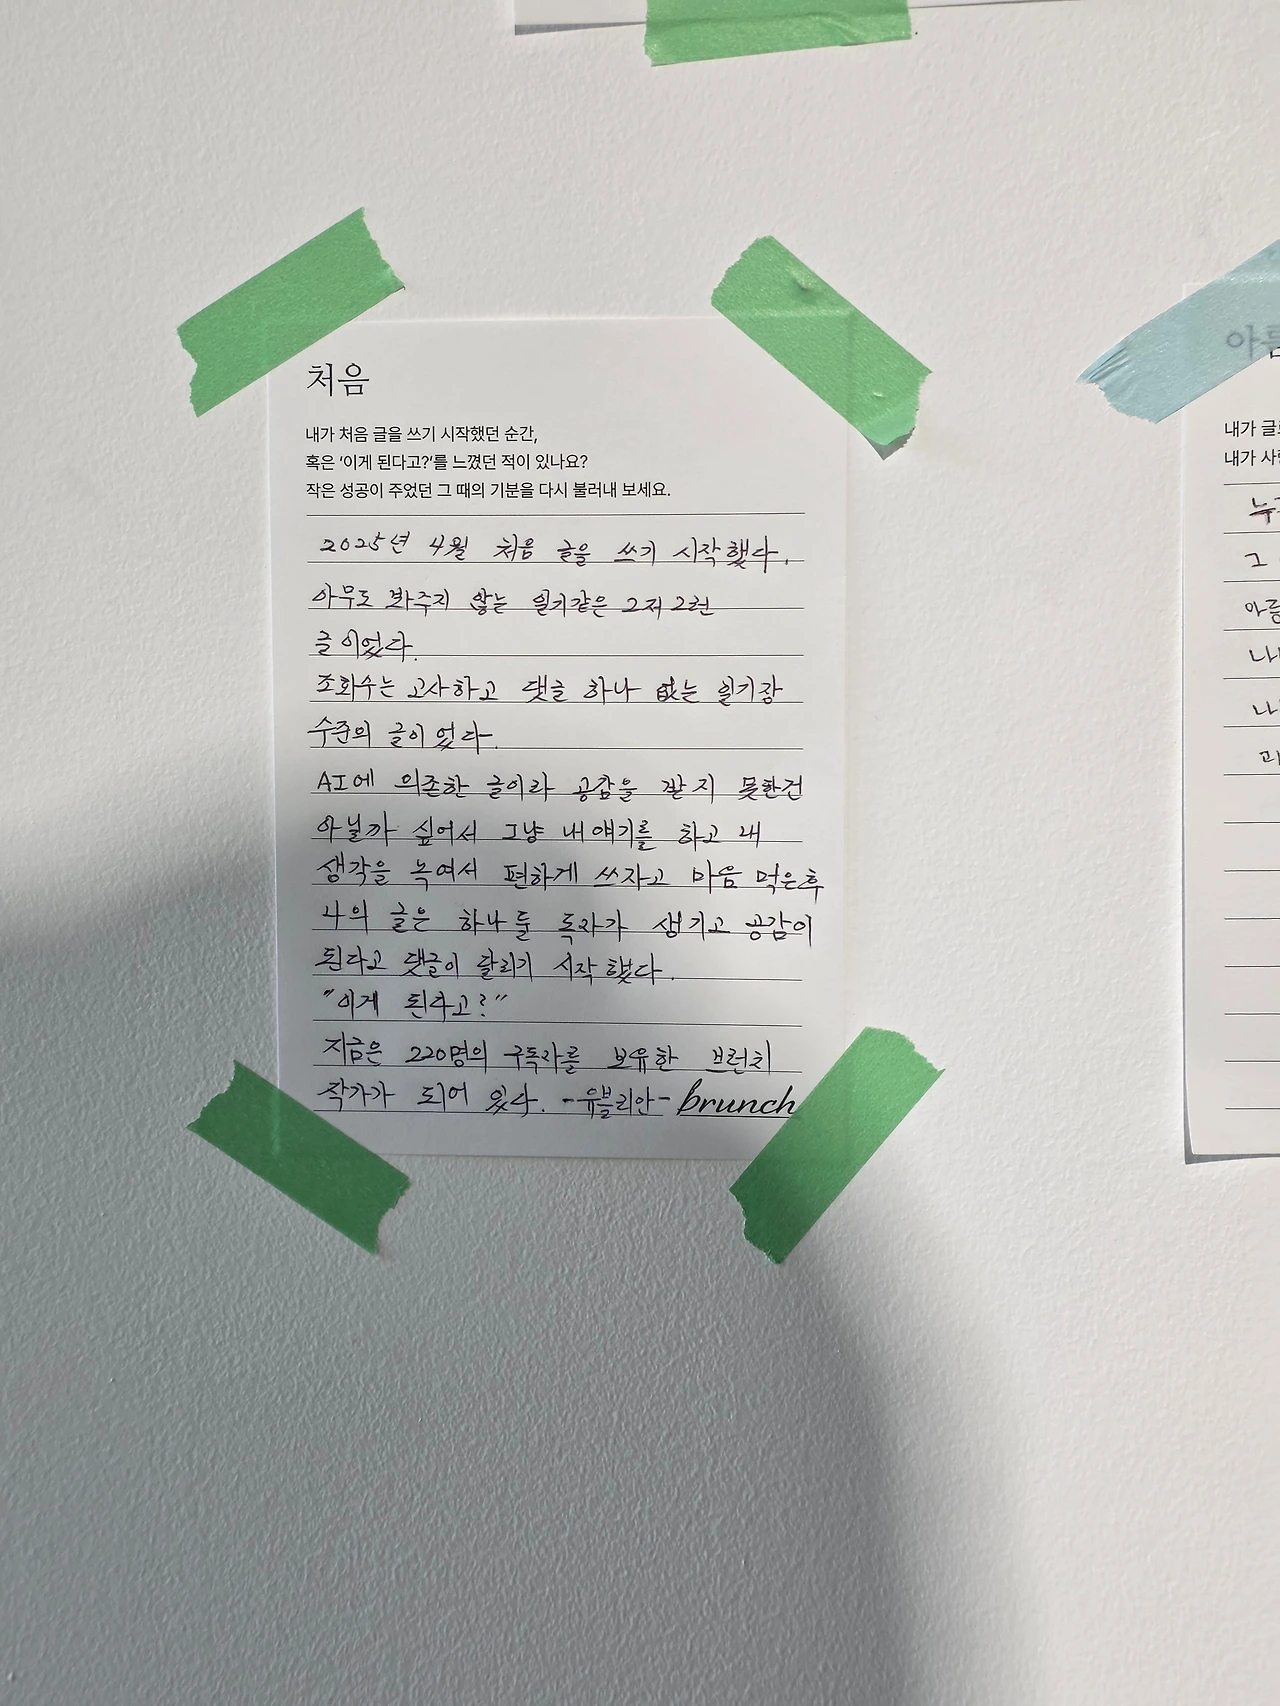 처음
내가 처음 글을 쓰기 시작했던 순간,
혹은 '이게 된다고?'를 느꼈던 적이 있나요?
작은 성공이 주었던 그 때의 기분을 다시 불러내 보세요.
2025년 4월 처음 글을 쓰기 시작했다.
아무도 봐주지 않는 일기같은 그저 그런
글이었다.
조회수는 고사하고 댓글 하나 없는 일기장
수준의 글이었다.
AI에 의존한 글이라 공감을 받지 못한건
아닐까 싶어서 그냥 내 얘기를 하고 내
생각을 녹여서 편하게 쓰자고 마음 먹은후
나의 글은 하나둘 독자가 생기고 공감이
된다고 댓글이 달리기 시작했다.
"이게 된다고?"
지금은 220명의 구독자를 보유한 브런치
작가가 되어 있다. -유블리안- brunch
내가
내가
그
나